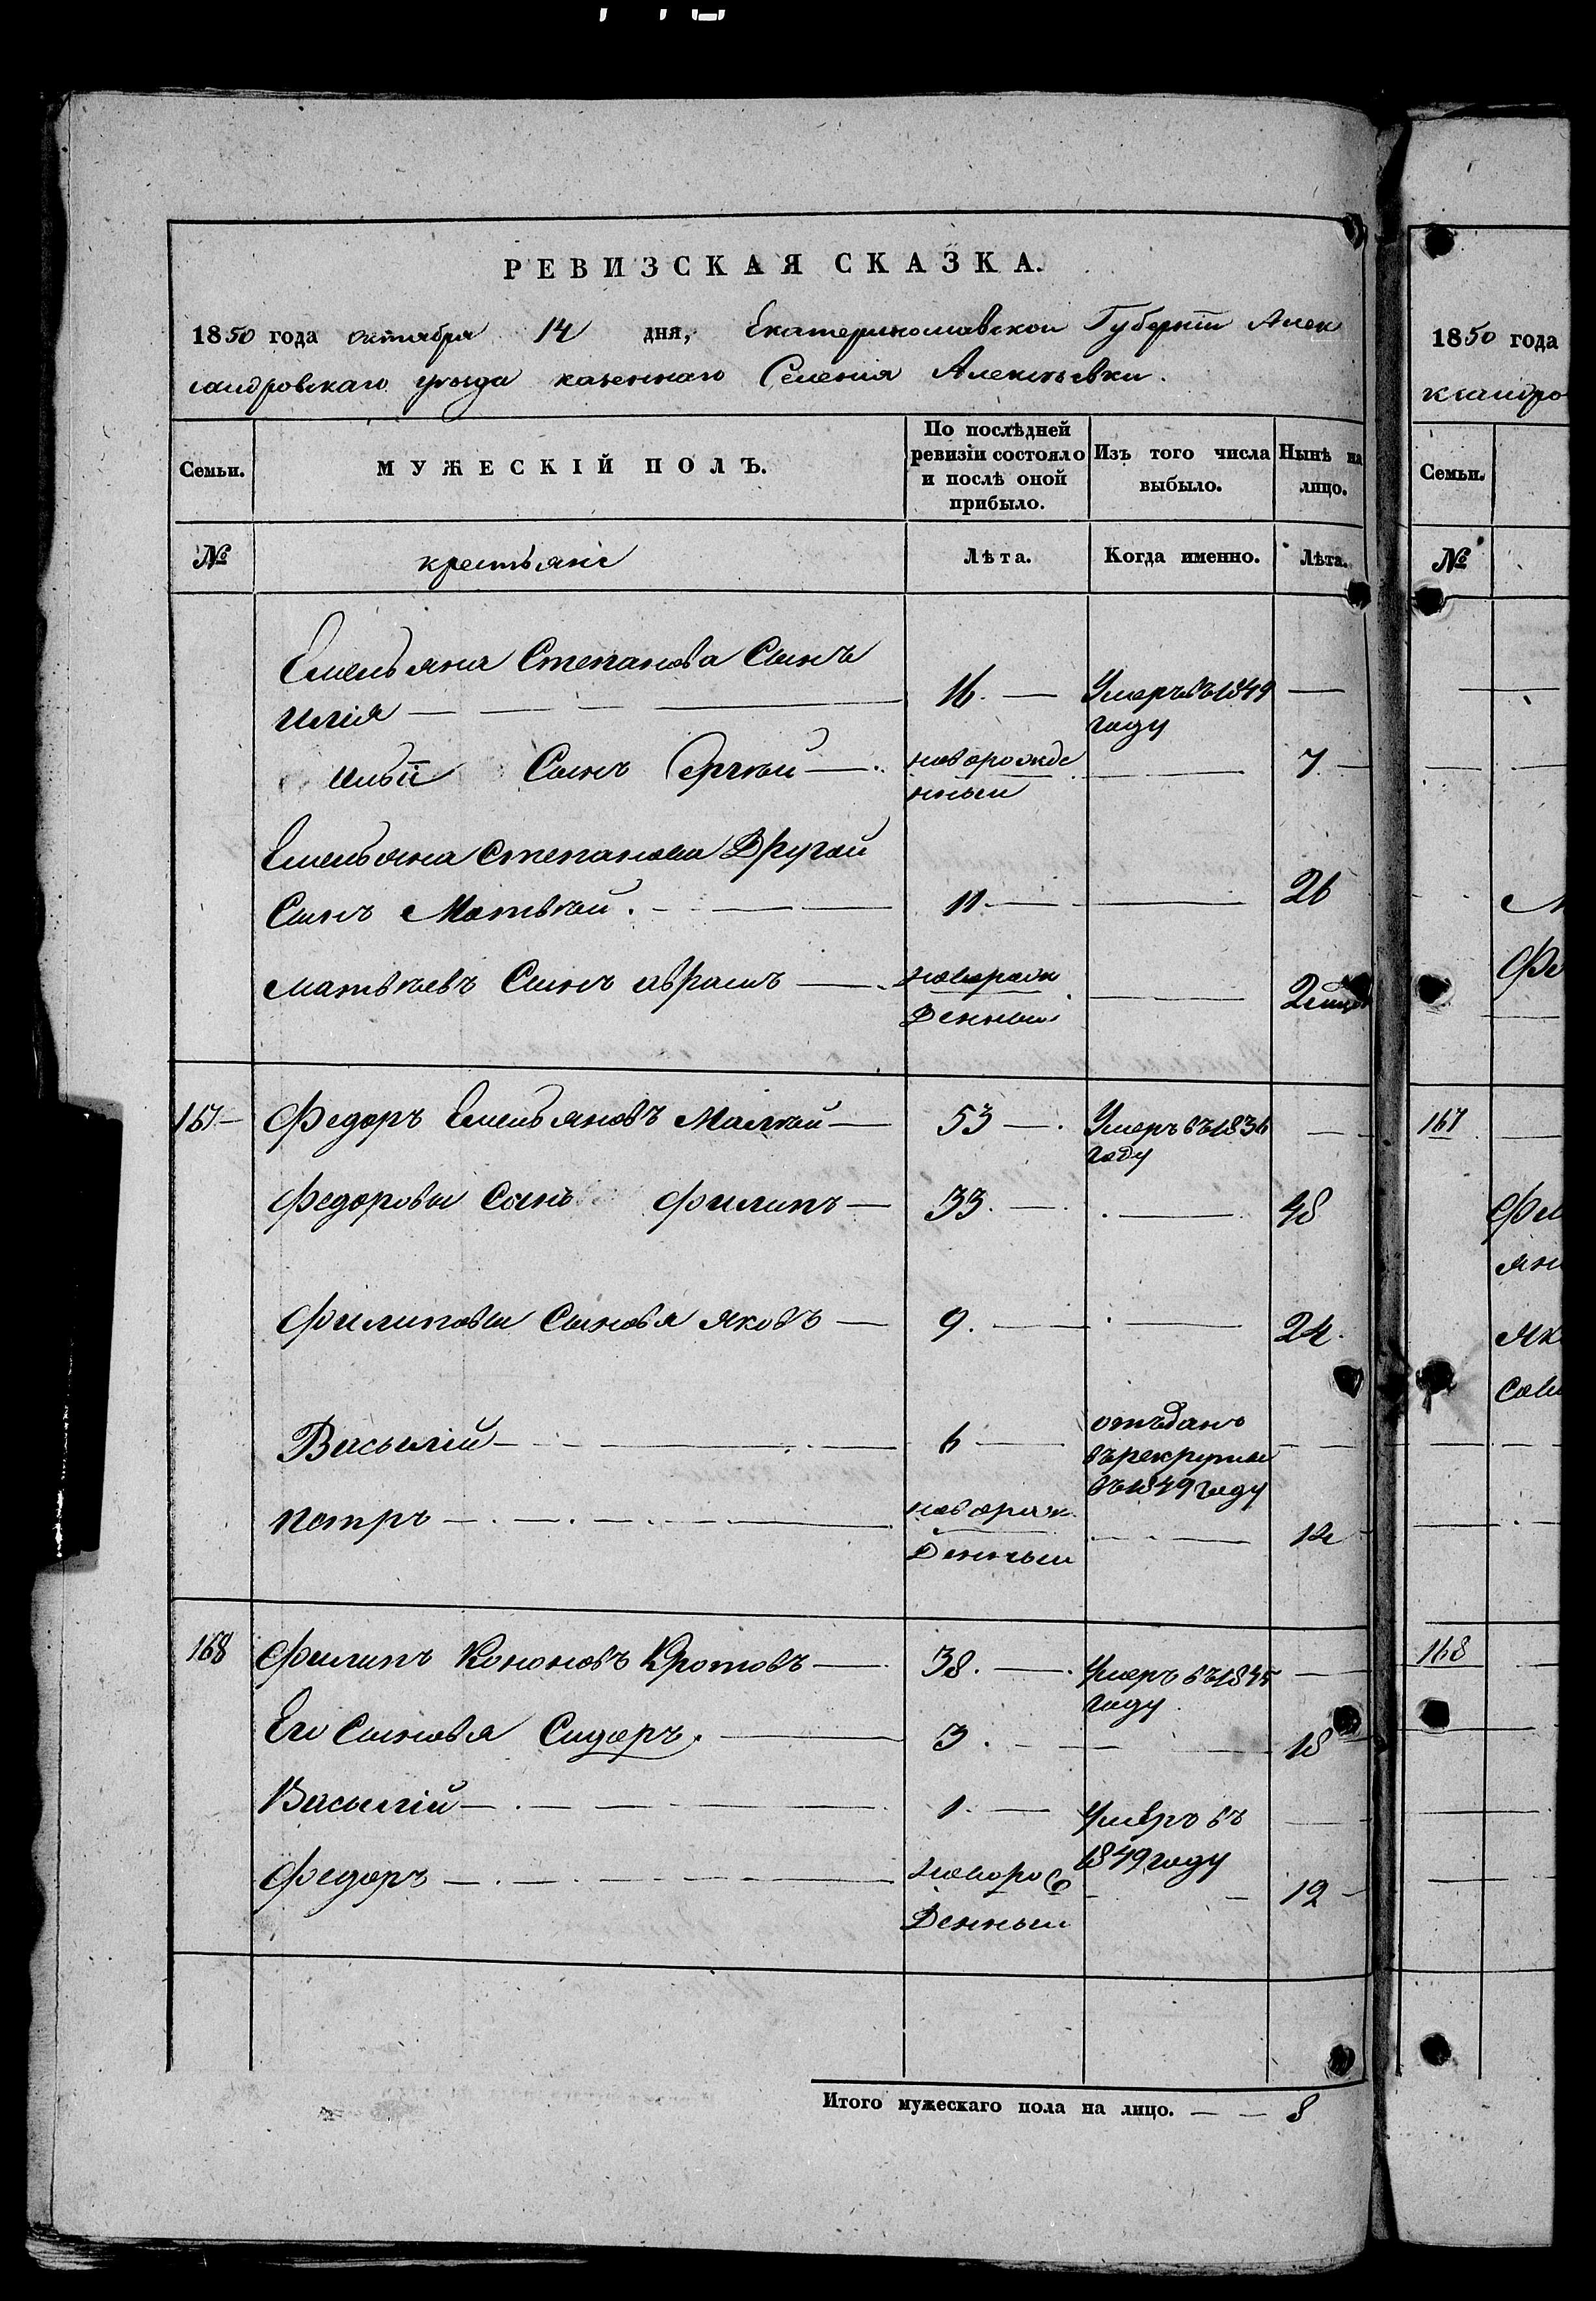 РЕВИЗСКАЯ СКАЗКА.
1850 года октября 14 дня, Екатеринославской Губернiи Алек
сандровскаго уѣзда казеннаго Селенiя Алексѣевки.
Семьи. МУЖЕСКІЙ ПОЛЪ. По послѣдней ревизіи состояло и послѣ оной прибыло. Изъ того числа выбыло. Нынѣ на лицо.
№ крестьяне Лѣта. Когда именно. Лѣта.
Емельяна Степанова Сынъ
Илія — 16. — Умеръ въ 1849 году —
Ильи Сынъ Сергѣй — новорожде нный — 7 —
Емельяна Степанова Другой
Сынъ Матвѣй. — 11 — — 26
Матвѣевъ Сынъ Абрамъ — новорож Денный — 2
167 — Федоръ Емельяновъ Малѣй — 53 — Умеръ въ 1836 году —
Федоровы Сынъ Филипъ — 33. — — 48
Филиповы Сыновя Яковъ — 9. — — 24.
Васылій — 6 — отъданъ въ рекруты въ 1849 году —
Петръ — новорож Денный — 14
168 Филипъ Кононовъ Кротовъ — 38. — Умеръ въ 1845 году —
Его Сыновя Сидоръ. — 3. — — 18
Васылій — 1. — Умеръ въ 1849 году —
Федоръ — новорож Денный — 12 —
Итого мужескаго пола на лицо. — — 8
1850 года
ксандро
Семьи.
№
Фе
167
Фил
яна
Як
Сав
168